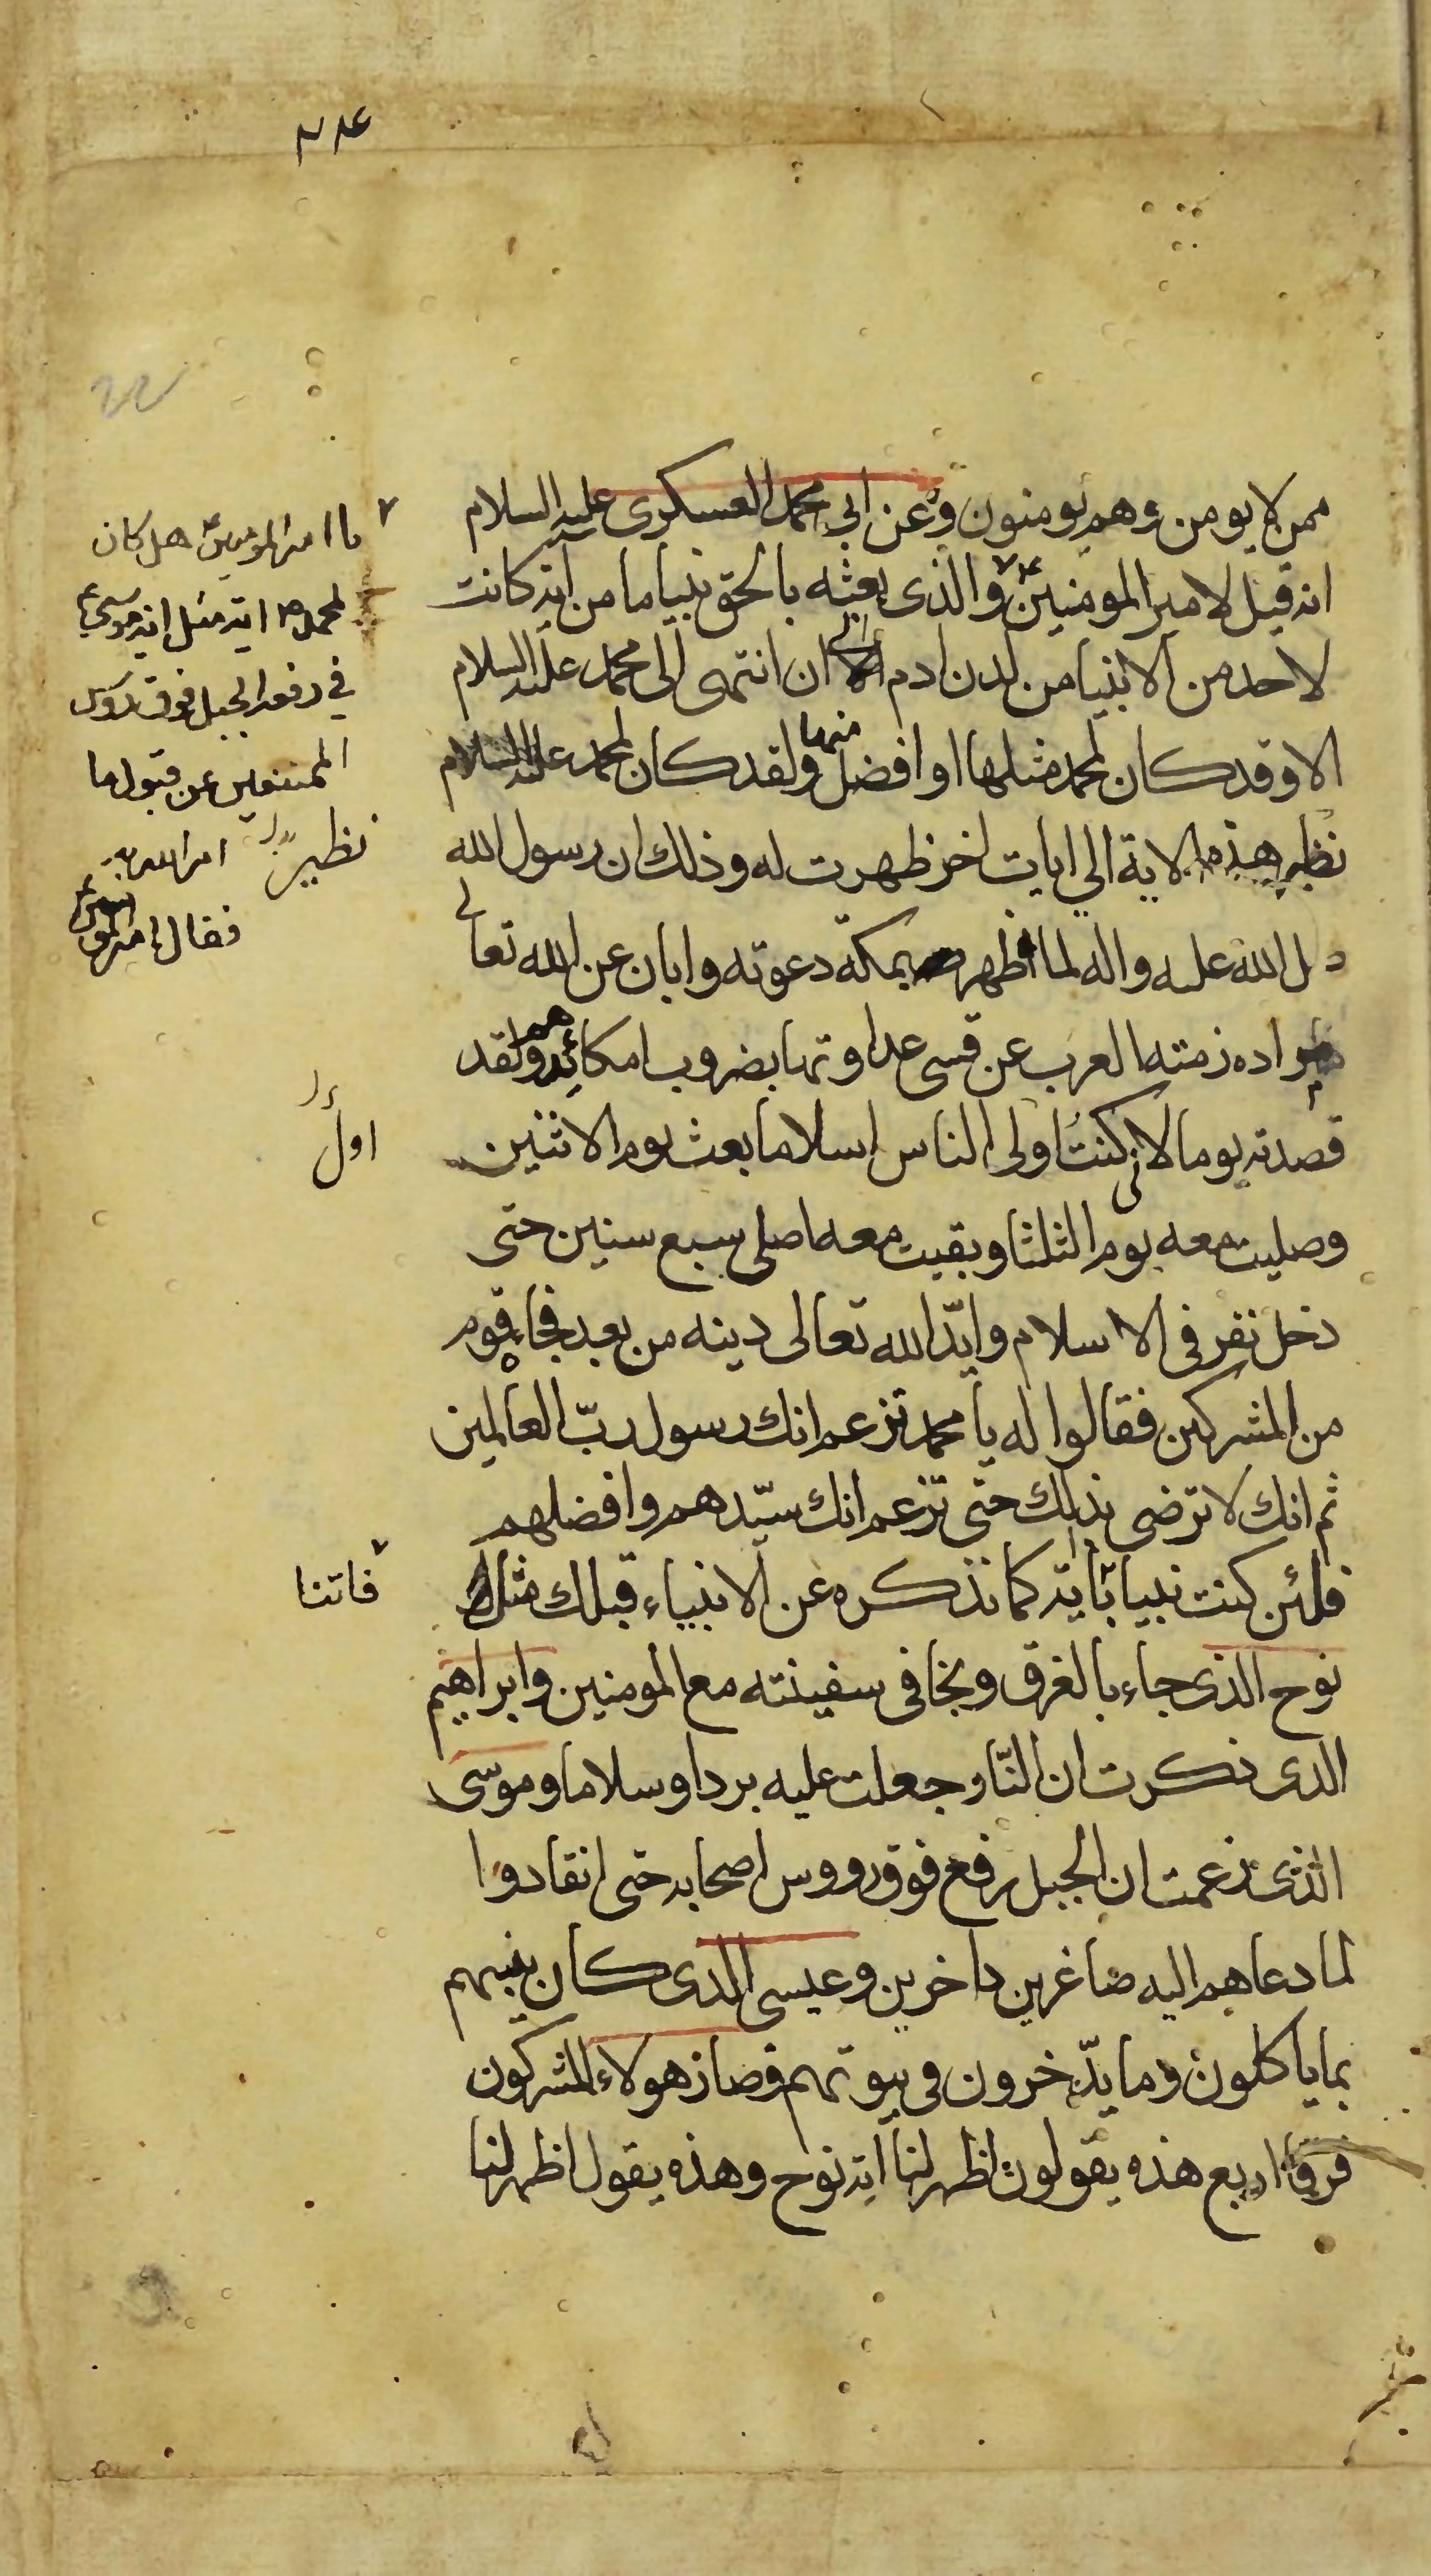 ٢٨٤
ممن لا يومن وهم يومنون وعن ابي محمد العسكرى عليه السلام
انه قيل لامير المومنين ع والذى بعثه بالحق نبيا ما من اية كانت
لاحد من الانبيا من لدن ادم الى ان انتهى الى محمد عليه السلام
الا وقد كان لمحمد مثلها او افضل منها ولقد كان لمحمد عليه السلام
نظير هذه الاية الي ايات اخر ظهرت له وذلك ان رسول الله
الله عليه واله لما اظهر بمكة دعوته وابان عن الله تعالى
مراده زمته العرب عن قسى عداوتها بضروب امكائدهم ولقد
قصدته يوما لانى كنتُ اولى الناس اسلاما بعث يوم الاثنين
وصليت معه يوم الثلثا وبقيت معه اصلى سبع سنين حتى
دخل نفر فى الاسلام وايّد الله تعالى دينه من بعد فجاء قوم
من المشركين فقالوا له يا محمد تزعم انك رسول ربّ العالمين
ثم انك لا ترضى بذلك حتى تزعم انك سيّدهم وافضلهم
فلئن كنت نبيا باية كما تذكره عن الانبياء قبلك مثل
نوح الذى جاء بالغرق ونجا فى سفينته مع المومنين وابراهيم
الذى ذكرت ان النّار جعلت عليه بردا وسلاما وموسى
الذى زعمت ان الجبل رفع فوق رووس اصحابه حتى انقادوا
لما دعاهم اليه صاغرين داخرين وعيسى الذى كان ينبيهم
بما ياكلون وما يدّخرون فى بيوتهم وصار هولاء المشركون
فرقا اربع هذه يقولون اظهر لنا اية نوح وهذه يقول اظهر لنا
يا امير المومنين هل كان
لمحمد ص اية مثل اية موسى ع
في رفعه الجبل فوق رؤس
الممتنعين عن قبول ما
امر الله به
فقال امير المومنين
نظير
اول
فاتنا